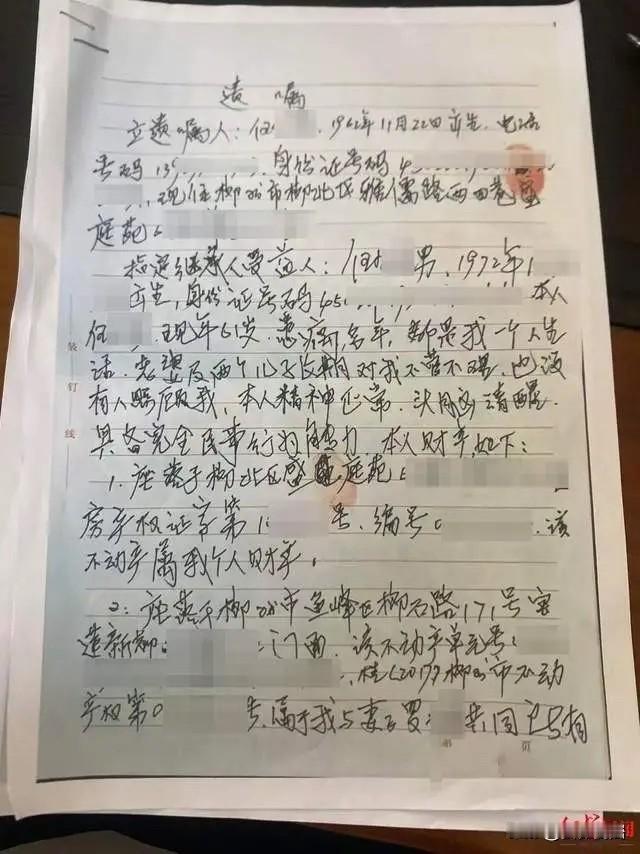 遗嘱
立遗嘱人：任 ，1962年11月22日出生，电话
号码13 身份证号码4
现住柳州市柳北区雅儒路西四巷盛
庭苑
指定继承人受益人：任 男，1972年1
出生，身份证号码450 本人
任 现年61岁，患病多年，都是我一个人生
活，妻子及两个儿子长期对我不管不理，也没
有人照顾我，本人精神正常，头脑清醒，
具备完全民事行为能力，本人财产如下：
1、座落于柳北区盛 庭苑
房产权证字第1 号，编号 ，该
不动产属我个人财产。
2：座落于柳州市鱼峰区柳石路171号
门面，该不动产单元号
桂(2017)柳州市不动
产权第0 号，属于我与妻子罗 共同
装
钉
线
第 页